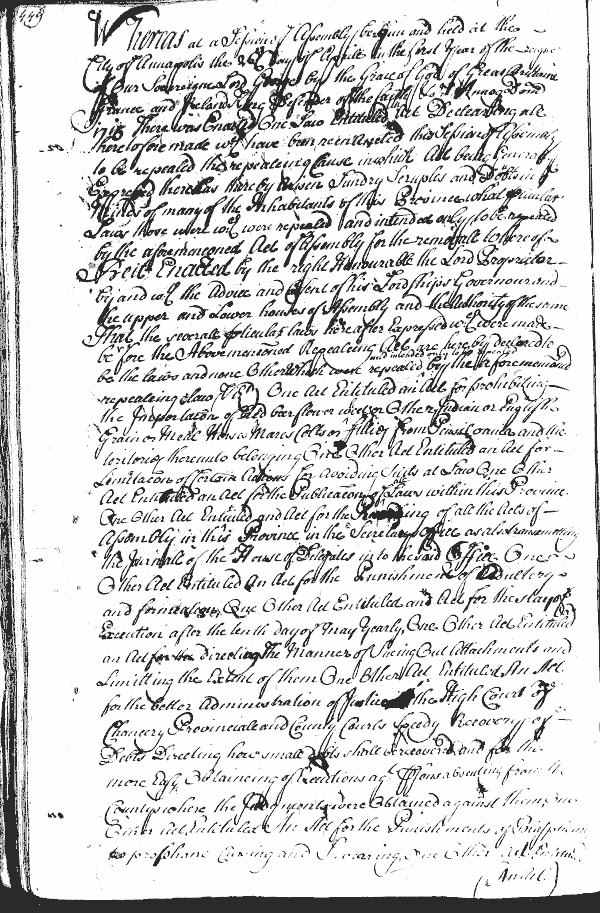 449
Whereas at a Sessions of Assembly begun and held at the
City of Annapolis the day of Aprill in the first Year of the
of Our Sovereigne Lord George by the Grace of God of Great Brittaine
France and Ireland King Defender of the faith &c Annoq Dom
1715 There was Enacted One Law Entituled An Act Declareing all
heretofore made wch have been reenacted this Session of Assembly
to be repealed the repealeing Clause in which Act being Generally
Expressed there has thereby arisen Sundry Scruples and Doubts in
Minds of many of the Inhabitants of this Province what perticular
Laws those were wch were repealed and intended only to be repealed
by the aforemenconed Act of Assembly for the removeale whereof
Be it Enacted by the right Honourable the Lord Proprietor
by and wth the Advice and Consent of his Lordships Governour and
the upper and Lower houses of Assembly and the Authority of the same
That the severall perticular laws hereafter expressed wch were made
before the Above menconed Repealeing Act are hereby declared to
and intended only to be repealed
be the laws and none Other which were repealed by the aforemenconed
repealeing clause One Act Entituled an Act for prohibiting
the Importacon of Bread beer flower Other Indian or English
Grain or Meale Horses Mares Colts or fillies from Pensilvania and the
territories thereunto belonging One Other Act Entituled an Act for
Limitacon of Certain Actions for avoiding Suits at Law One Other
Act Entituled an Act for the Publicacon of Laws within this Province
One Other Act Entituled and Act for the Recording of all the Acts of
Assembly in this Province in the Secretarys Office as also transmitting
the Journall of the House of Delegates in to the said Office One
Other Act Entituled An Act for the Punishment of Adultery
and fornication One Other Act Entituled and Act for the stay of
Execution after the tenth day of May Yearly One Other Act Entituled
an Act for directing the Manner of Sueing Out Attachments and
Limitting the Extent of them One Other Act Entituled An Act
for the better Administration of Justice the High Court of
Chancery Provinciale and County Courts Speedy Recovery of
Debts Directing how small Debts shall be recovered and for the
more Easy Obtaineing of Executions agt psons absenting from the
Countys where the Judgments were Obtained against them One
Other Act Entituled An Act for the Punishments of
to prophane Cursing and Swearing One Other Act Entitu
An Act